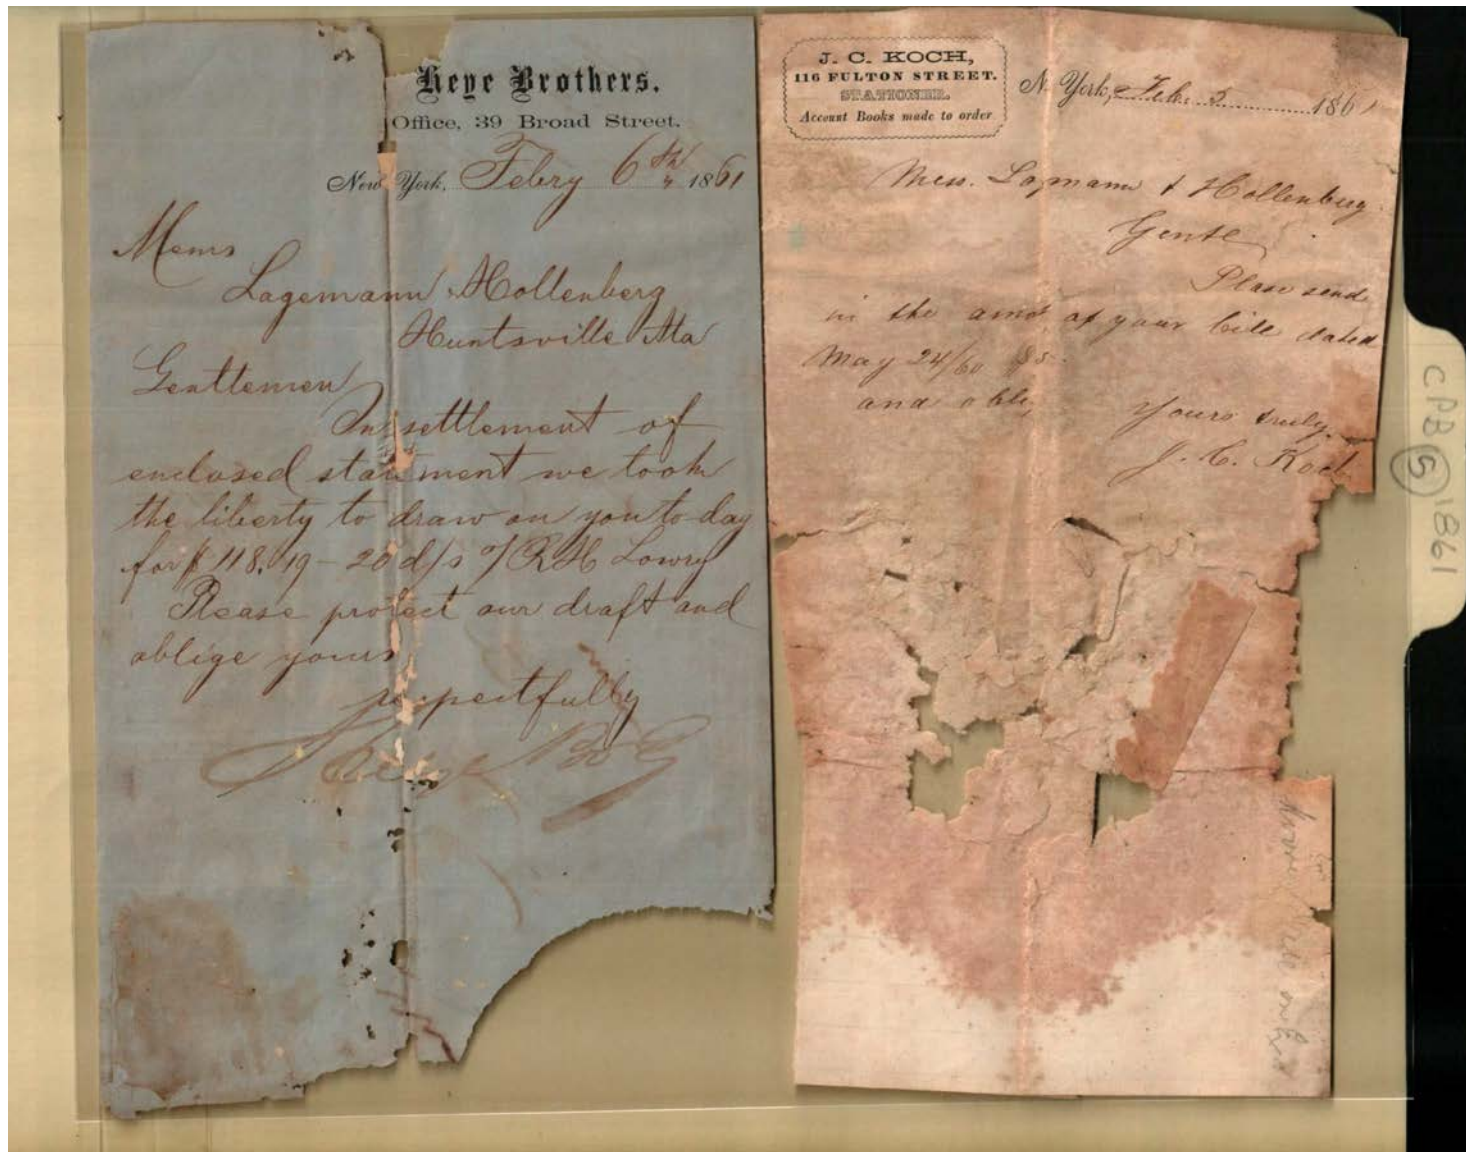 Heye Brothers.
Office, 39 Broad Street.
New York, Febry 6th 1861
Messrs
Lagemann & Hollenberg
Huntsville Ala
Gentlemen
In settlement of
enclosed statement we took
the liberty to draw on you to day
for $118.19 - 20 d/s o/ R H Lowry
Please protect our draft and
oblige yours
respectfully
Heye Bros
J. C. KOCH,
116 FULTON STREET.
STATIONER.
Account Books made to order
N. York, Feb. 5 1861
Mess. Lagmann & Hollenberg
Gents
Please send
in the amt of your bill dated
May 24/60
and oblg
Yours truly
J. C. Koch
CPB 5 1861